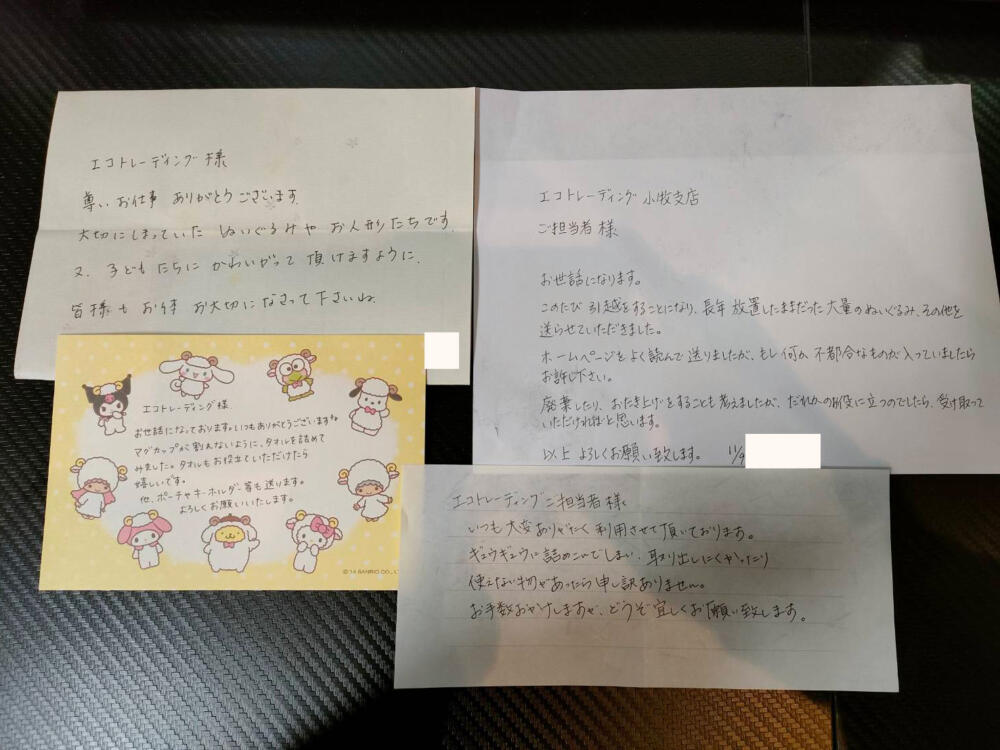 エコトレーディング様
尊いお仕事 ありがとうございます。
大切にしまっていた ぬいぐるみや お人形たちです。
又、子どもたちに かわいがって 頂けますように。
皆様も お体 お大切になさって下さいね。
エコトレーディング 小牧支店
ご担当者 様
お世話になります。
このたび 引越をすることになり、長年 放置したままだった 大量のぬいぐるみ、その他を
送らせていただきました。
ホームページをよく読んで 送りましたが、もし 何か 不都合なものが 入っていましたら
お許し下さい。
廃棄したり、おたき上げをすることも 考えましたが、だれかの お役に立つのでしたら、受け取って
いただければと思います。
以上 よろしくお願い致します。 11/9
エコトレーディング様
お世話になっております。いつもありがとうございます。
マグカップが割れないように、タオルを詰めて
みました。タオルもお役立ていただけたら
嬉しいです。
他、ポーチやキーホルダー等も送ります。
よろしくお願いいたします。
©'14 SANRIO CO., L
エコトレーディングご担当者様
いつも大変ありがたく利用させて頂いております。
ギュウギュウに詰めこんでしまい、取り出しにくかったり
使えない物があったら申し訳ありません。
お手数おかけしますが、どうぞ宜しくお願い致します。